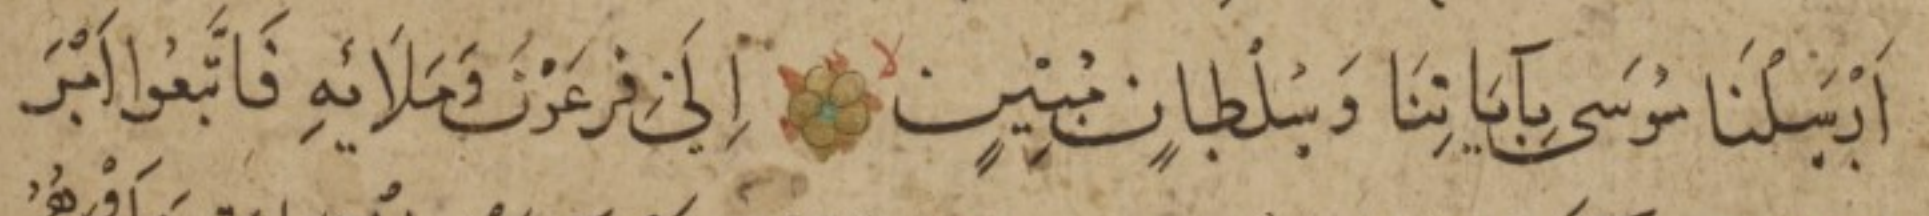 اَرْسَلْنَا مُوسَى بِآيَاتِنَا وَسُلْطَانٍ مُبِينٍ لا اِلَى فِرْعَوْنَ وَمَلَائِهِ فَاتَّبَعُوا اَمْرَ